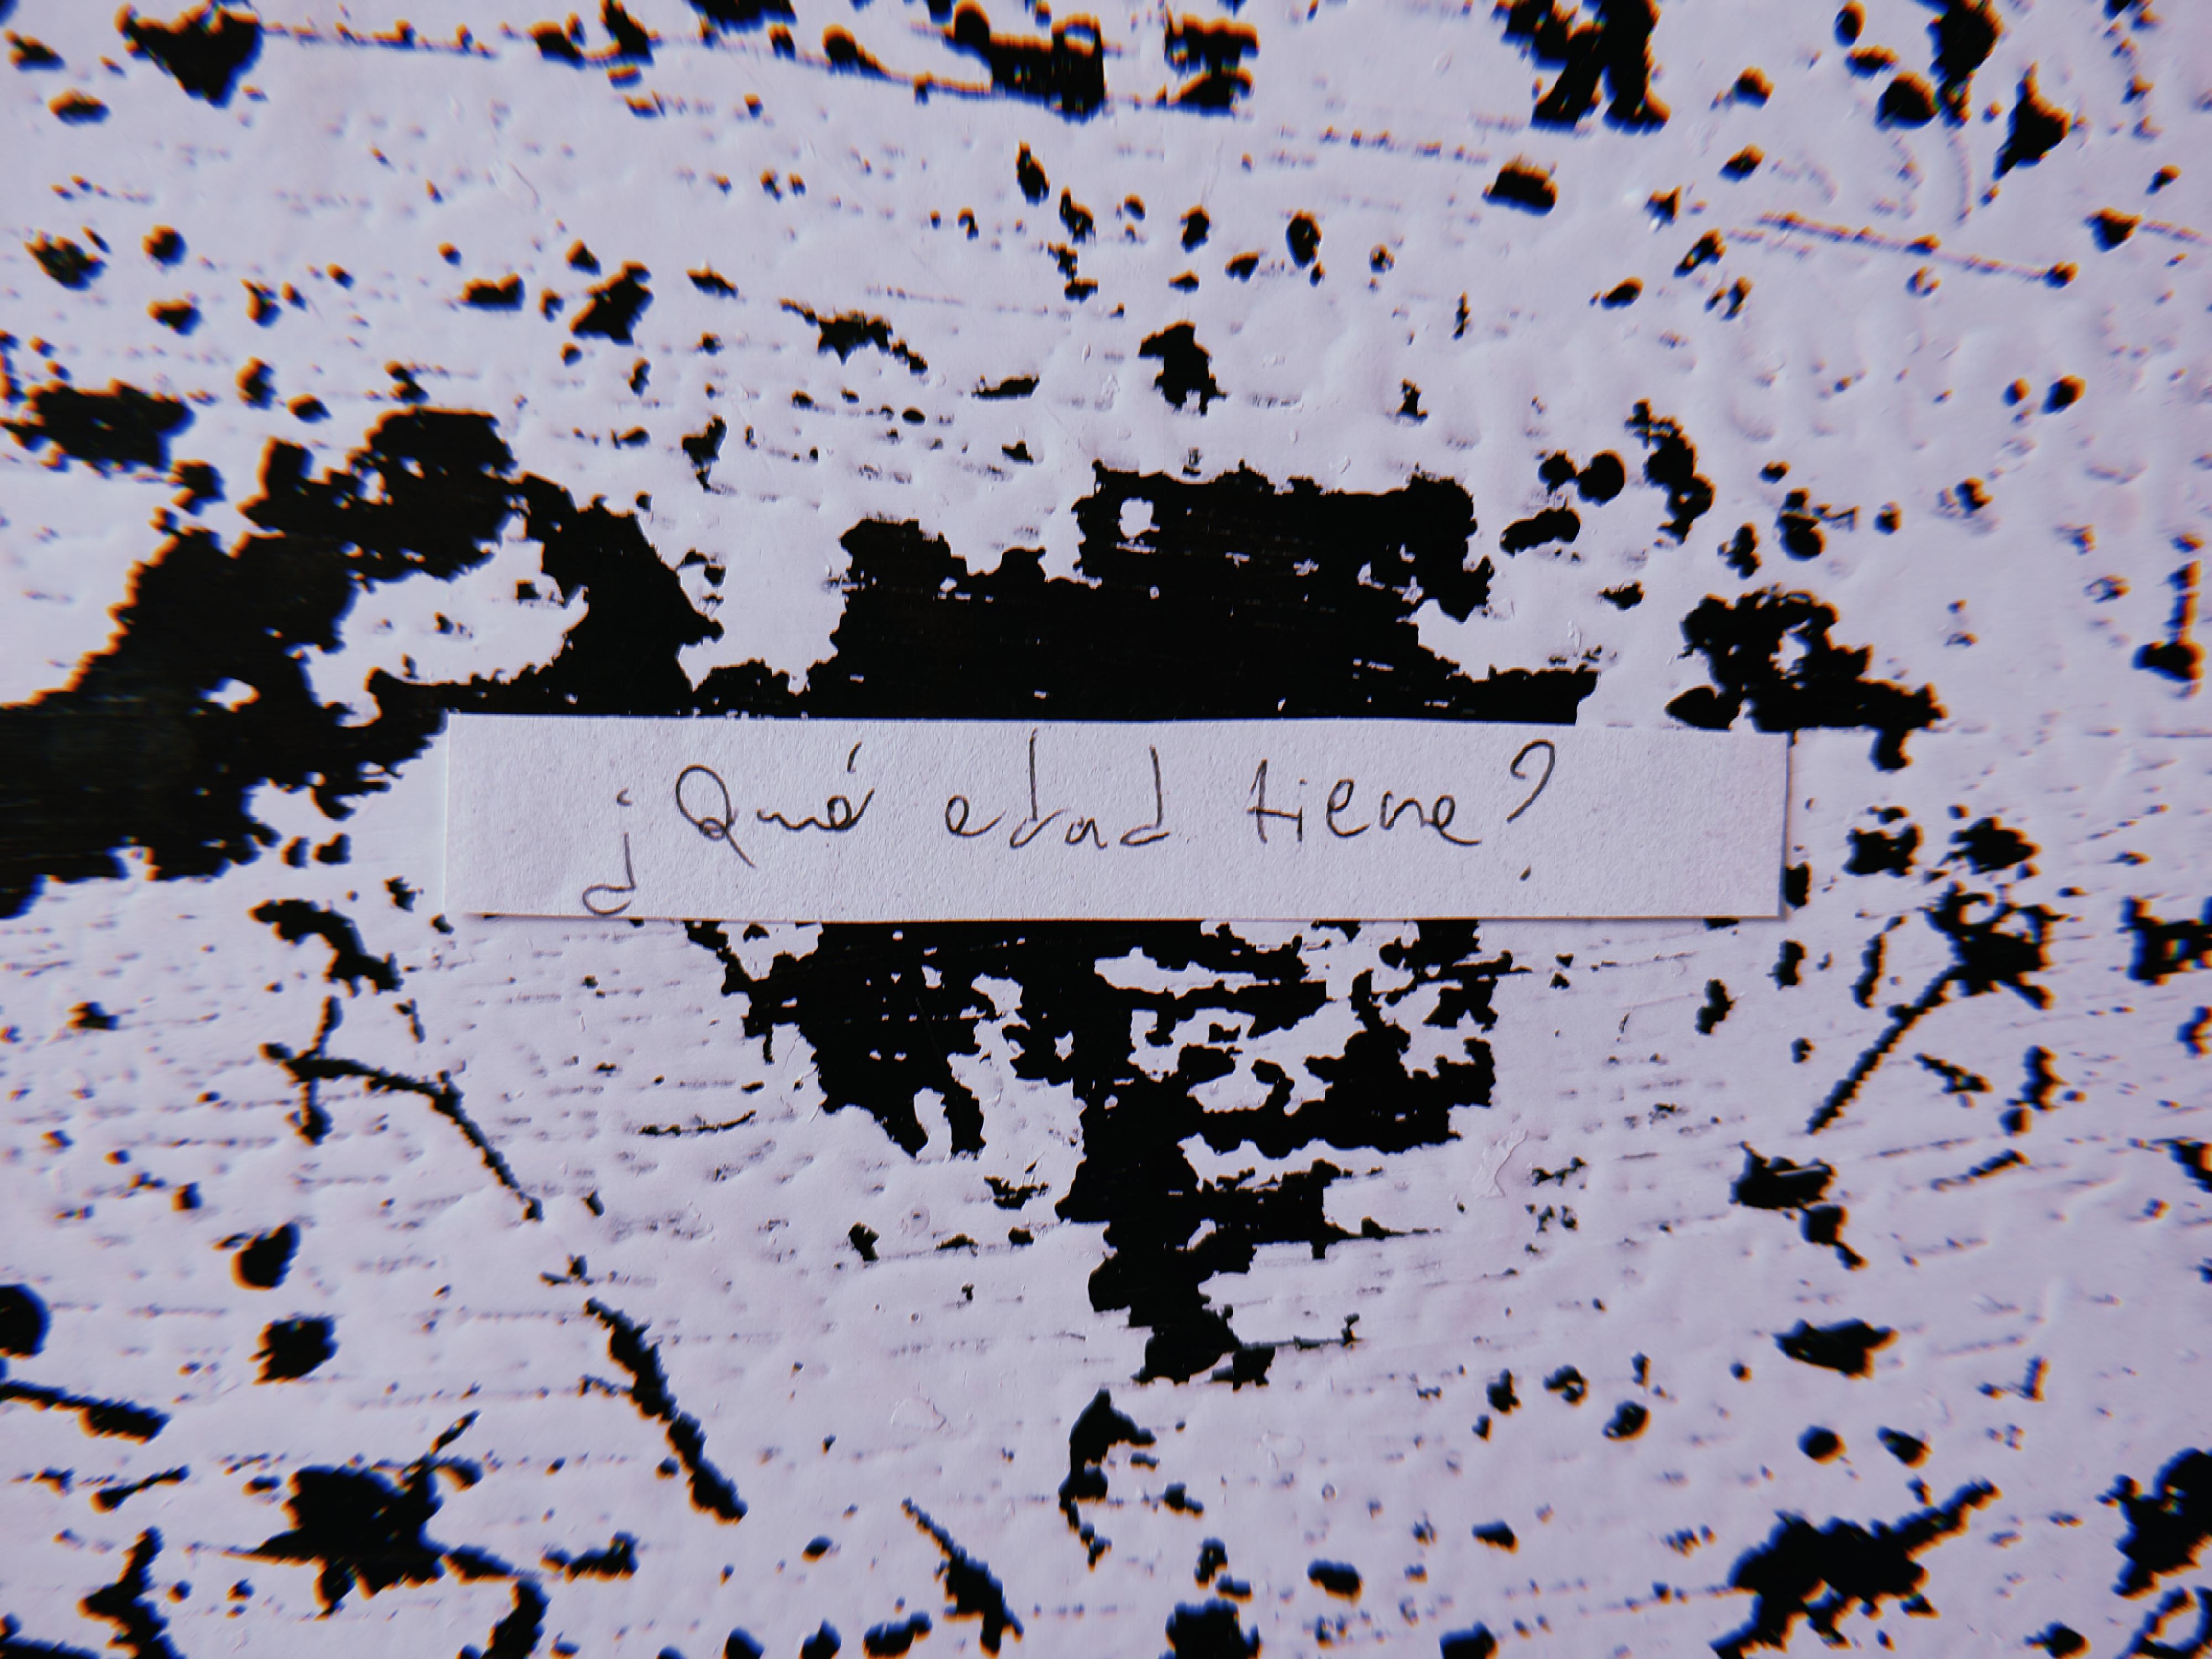 ¿Qué edad tiene?